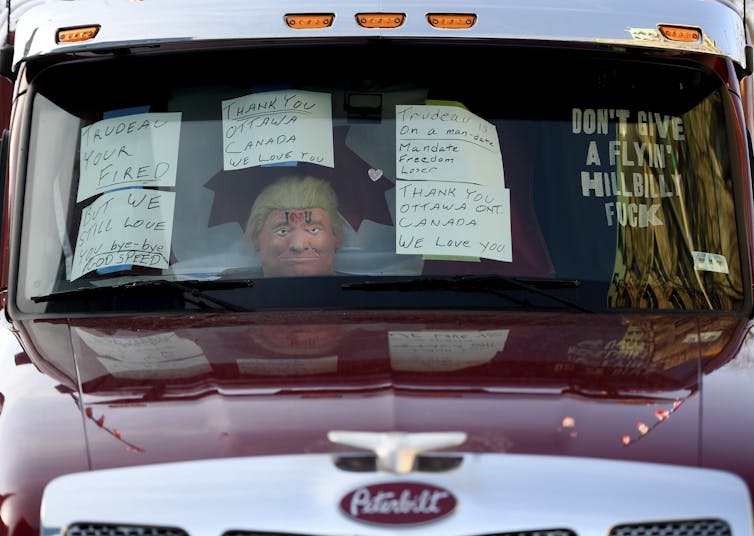 TRUDEAU
YOUR
FIRED
BUT WE
STILL LOVE
YOU bye-bye
GOD SPEED
THANK YOU
OTTAWA
CANADA
WE LOVE YOU
I ♥ U
Trudeau is
On a man-date
Mandate
Freedom
Loser
THANK YOU
OTTAWA ONT.
CANADA
We Love You
DON'T GIVE
A FLYIN'
HILLBILLY
FUCK
Peterbilt